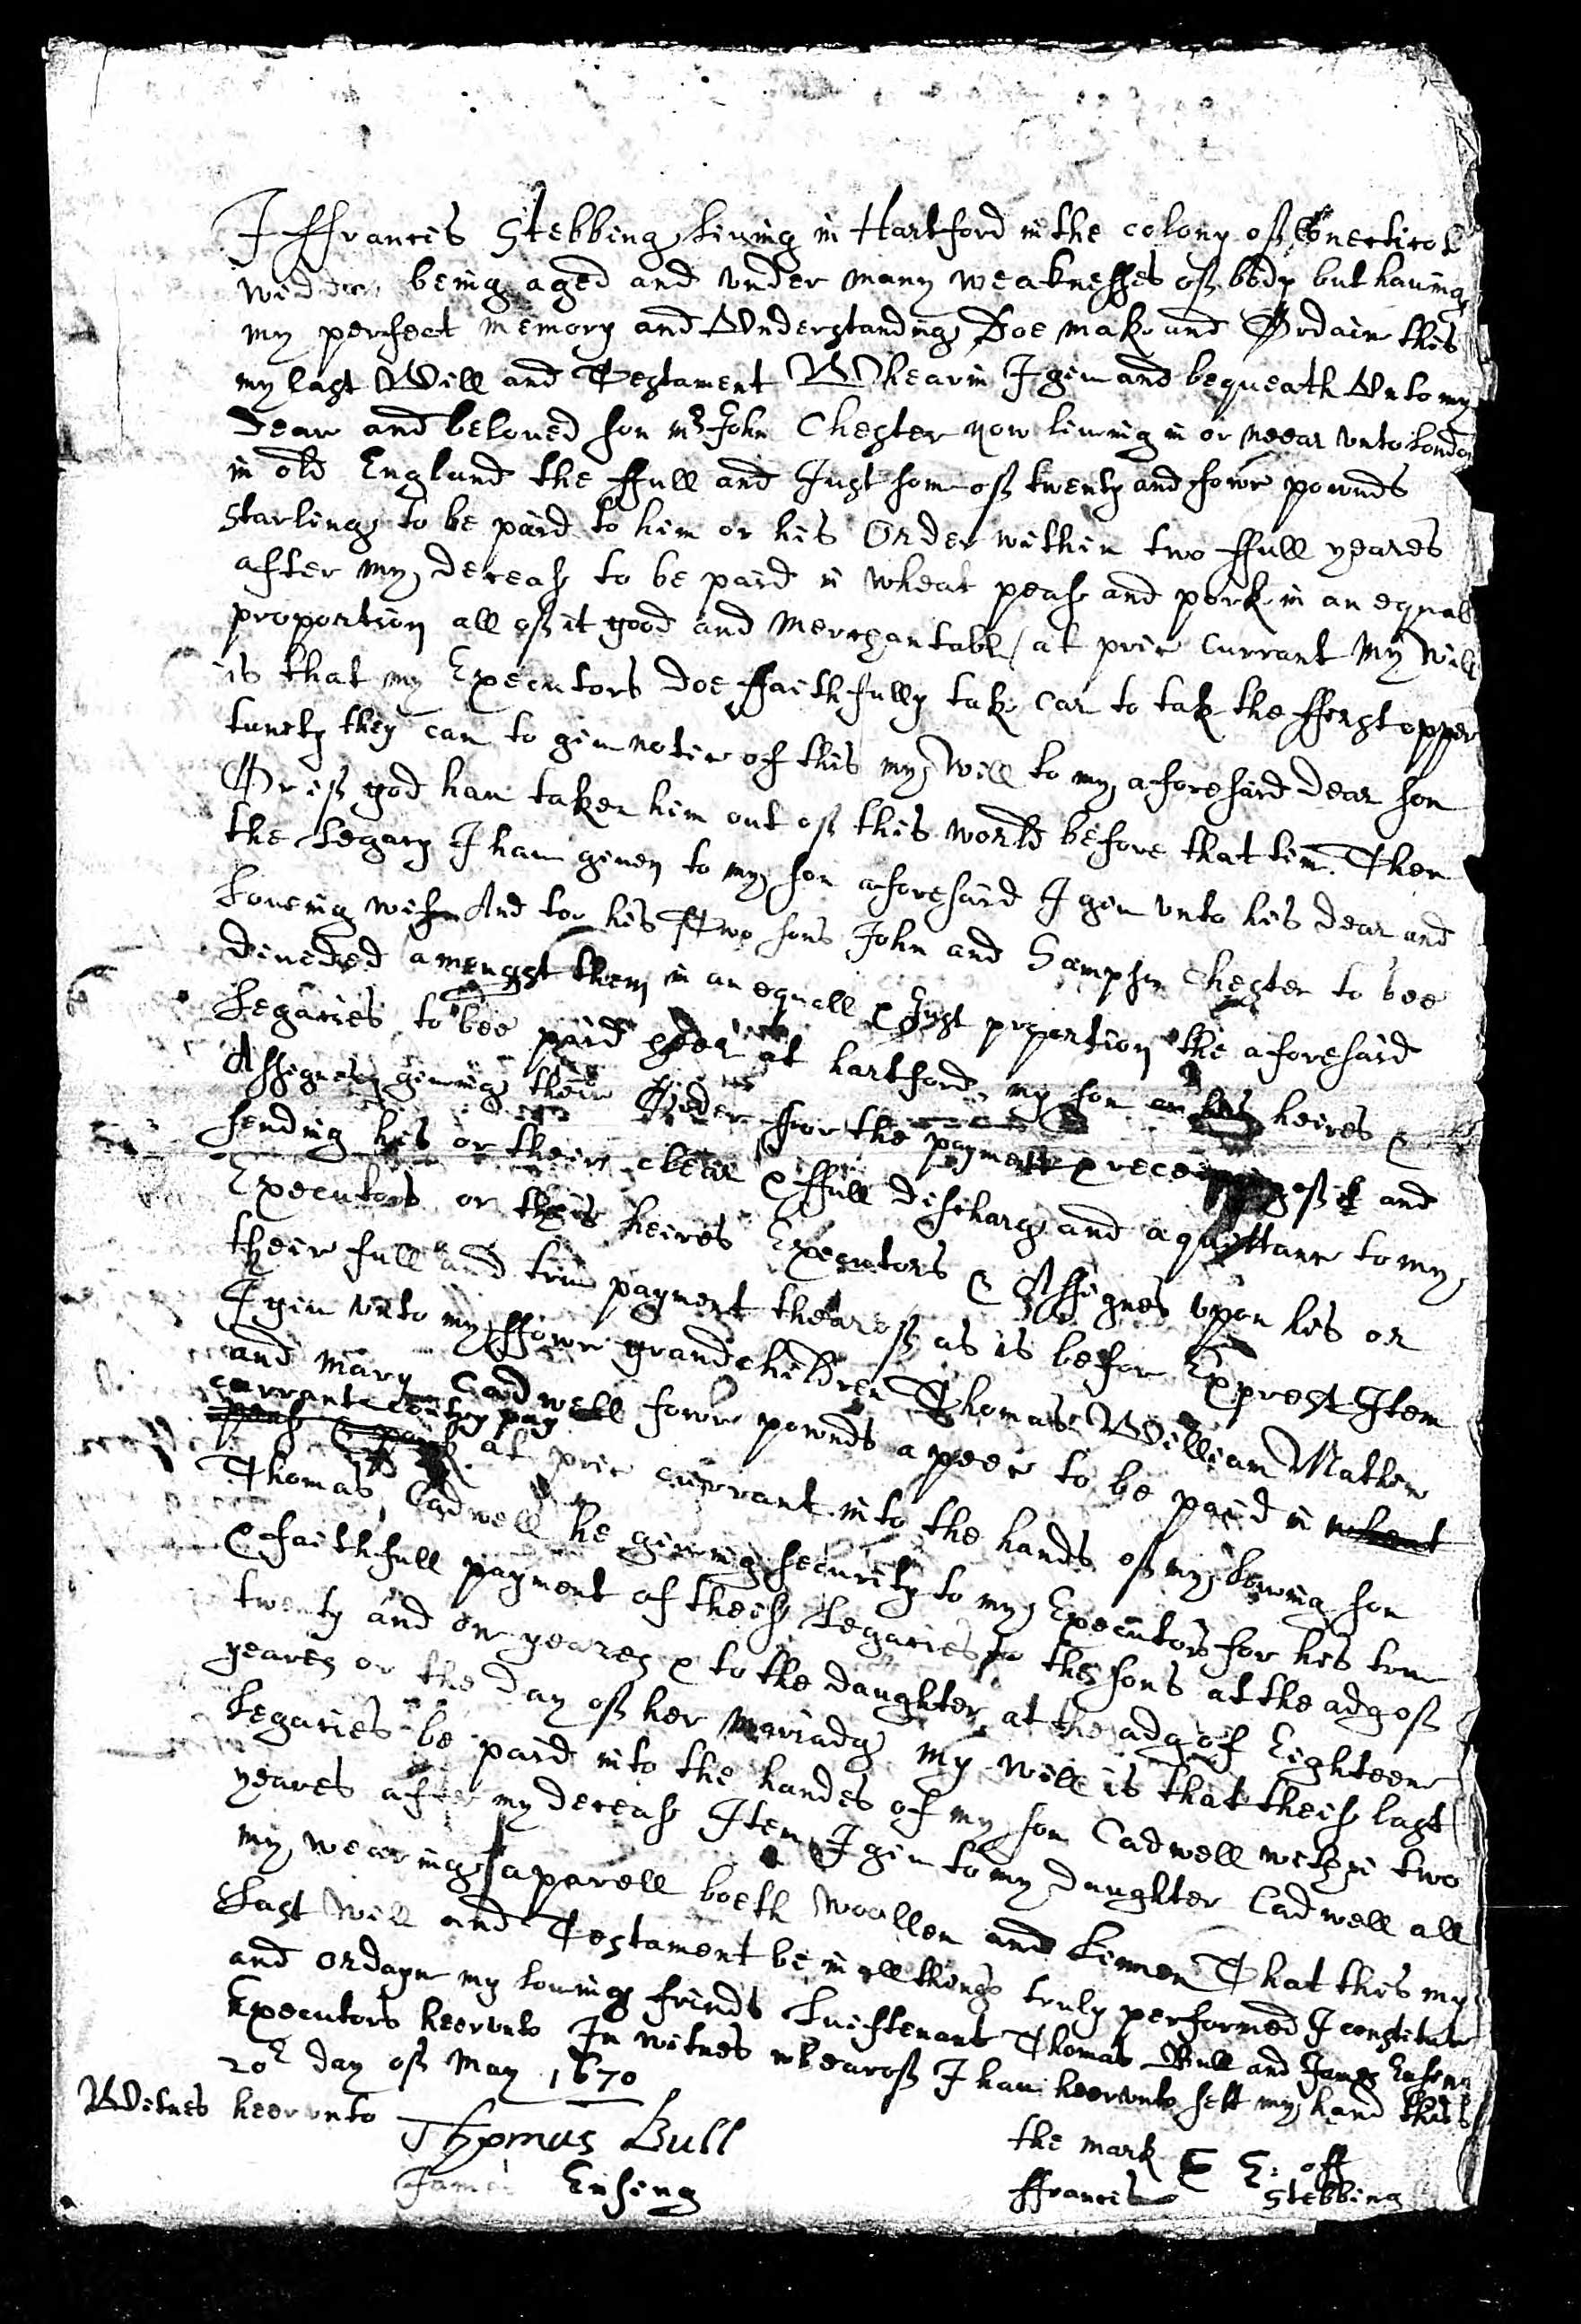 I ffrancis Stebbing Living in Hartford in the colony off Conecticot
widdow being aged and vnder many weaknesses off body but having
my perfect memory and Vnderstanding Doe make and Ordain this
my last Will and Testament Whearin I giue and bequeath Vnto my
Dear and beloued son mr John Chester now liuing in or neear vnto London
in old England the ffull and Just som off twenty and fowr pownds
Starling to be paid to him or his Order within two ffull yeares
after my decease to be paid in wheat pease and pork in an equall
proportion all off it good and merchantable at price currant my will
is that my Executors doe ffaithfully take car to take the fferst opper
tunety they can to giue notice of this my will to my aforesaid dear son
Or iff god haue taken him out off this world before that time Then
the Legacy I haue giuen to my son aforesaid I giue vnto his dear and
Loueing wife And too his Two sons John and Sampson Chester to bee
Diueded amongst them in an equall & Just proportion the aforesaid
Legacies to bee paid heer at hartford my son or his heires &
Assignes giueing their Order ffor the payment & receiping off it and
sending his or their clear & ffull discharge and aquittance to my
Executors or their heires Executors & Assignes vpon his or
their full and true payment thearoff as is befor Exprest Item
I giue vnto my ffowr grandchildren Thomas William Mathew
and Mary Cadwell fowr pownds a peec to be paid in wheat
currant contry pay
pease & pork at price currant into the hands off my Loveing son
Thomas Cadwell he giueing security to my Executors for his true
& faithfull payment of theise Legacies to the sons at the adg off
twenty and one yeares & to the daughter at the adg of Eighteene
yeares or the day off her mariadg my will is that theise last
Legacies be paid into the handes of my son Cadwell within two
yeares after my decease Item I giue to my daughter Cadwell all
my weareing aparell boeth woollen and Linnen That this my
Last will and Testament be in all things truly performed I constitute
and ordayne my loueing frinds Luiftenant Thomas Bull and James Ensing
Executors heervnto In witnes whearoff I haue heervnto sett my hand this
20th day off May 1670
Witnes heervnto
Thomas Bull
James Ensing
the mark E E: off
ffrancis Stebbing